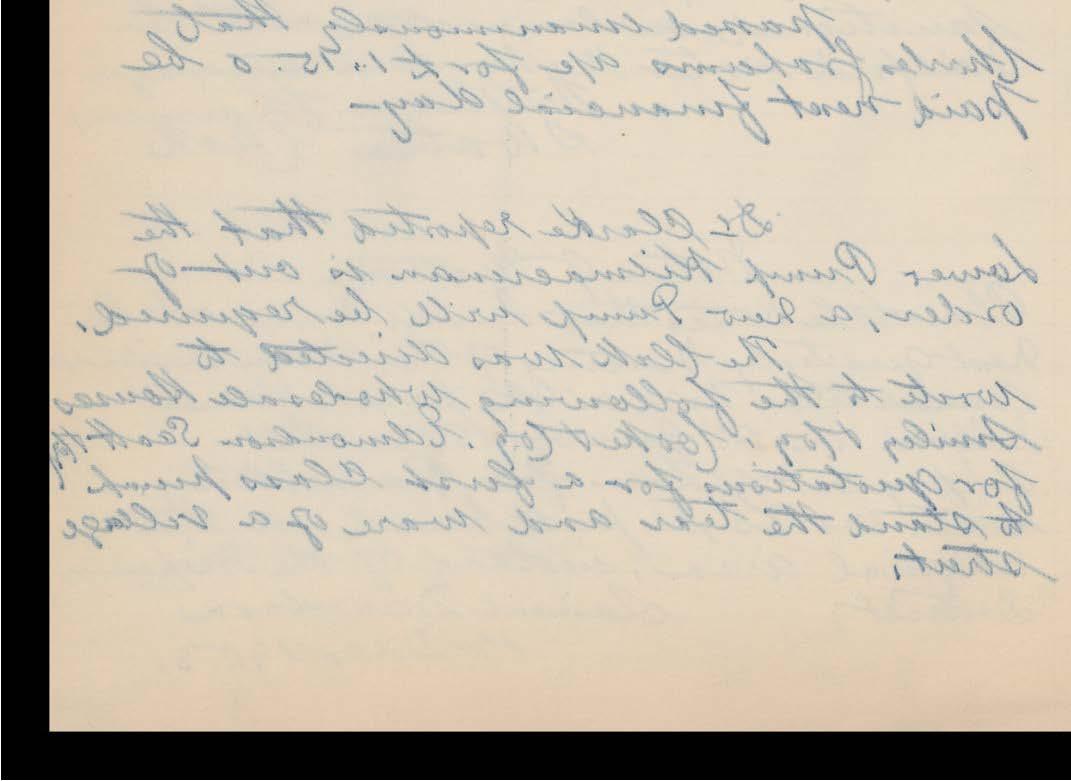 passed unanimously that
Charles Grahams a/c for £1.15.0 be
paid next financial day—
Dr Clarke reported that the
Lower Pump Kilmacrenan is out of
order, a new Pump will be required.
The Clerk was directed to
write to the following Wholesale Houses
Smiley & Coy, Cooke & Coy. Edmondson Scott & Coy
for quotations for a first Class pump
to stand the tear and ware of a village
street.